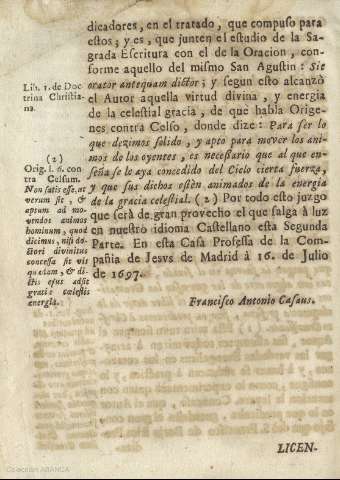 dicadores, en el tratado, que compuso para
estos; y es, que junten el estudio de la Sa-
grada Escritura con el de la Oracion, con-
forme aquello del mismo San Agustin: Sit
orator antequam dictor; y segun esto alcanzò
el Autor aquella virtud divina, y energia
de la celestial gracia, de que habla Orige-
nes contra Celso, donde dize: Para ser lo
que dezimos solido, y apto para mover los ani-
mos de los oyentes, es necesario que al que en-
seña se le aya concedido del Cielo cierta fuerza,
y que sus dichos estèn animados de la energia
de la gracia celestial. (2) Por todo esto juzgo
que serà de gran provecho el que salga à luz
en nuestro idioma Castellano esta Segunda
Parte. En esta Casa Professa de la Com-
pañia de Jesvs de Madrid à 16. de Julio
de 1697.
Francisco Antonio Casaus.
Lib. 1. de Doc
trina Christia-
na.
(2)
Orig. l. 6. con
tra Celsum.
Non satis esse, ut
verum sit, &
aptum ad mo-
vendos animos
hominum, quod
dicimus, nisi do-
ctori divinitus
concessa sit vis
quædam, & di-
ctis ejus adsit
gratiæ cælestis
energia.
LICEN-
Colección ABANCA